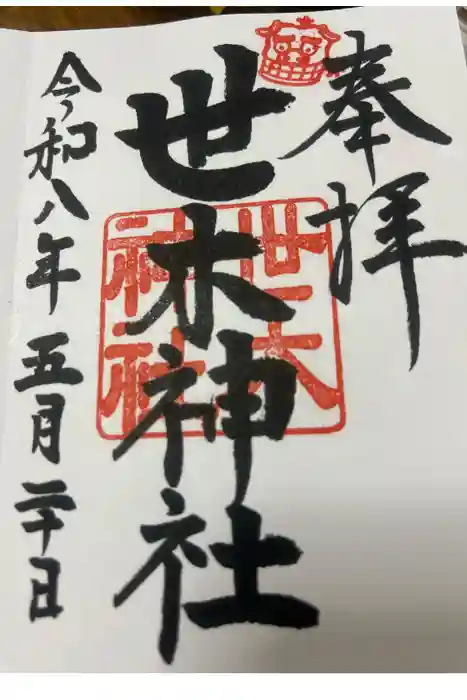 奉拝
世木神社
世木
神社
令和八年五月二十日